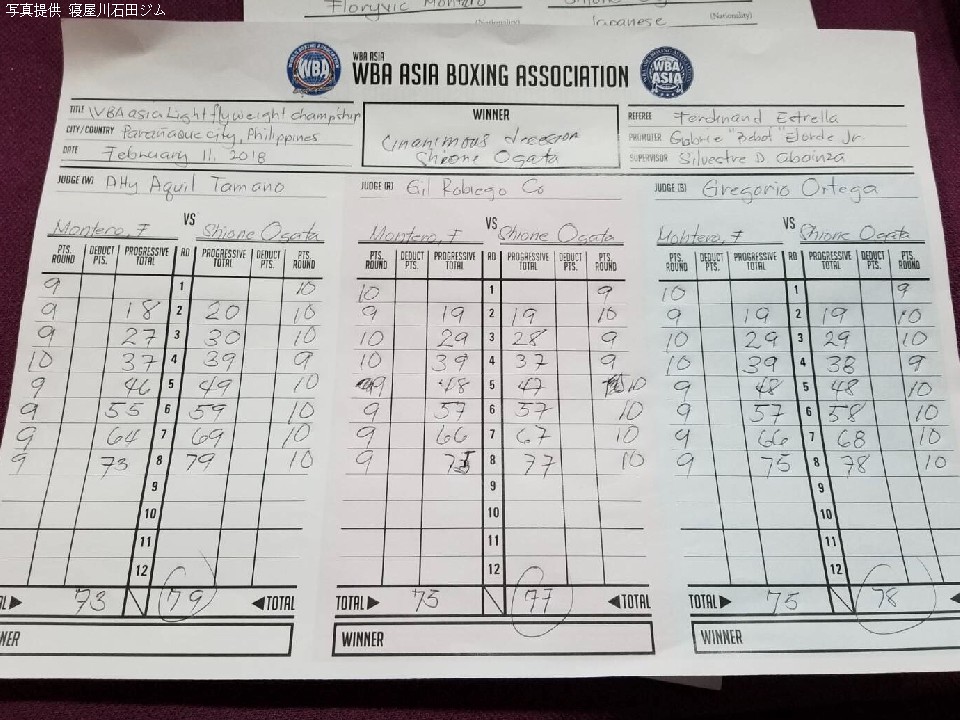 写真提供 寝屋川石田ジム
Floryvic Montero
(Nationality)
Japanese (Nationality)
WBA
WBA ASIA
WBA ASIA
WBA ASIA BOXING ASSOCIATION
TITLE WBA asia Light flyweight champship
CITY/COUNTRY Paranaque city, Philippines
DATE February 11, 2018
WINNER
Unanimous decision
Shione Ogata
REFEREE Ferdinand Estrella
PROMOTER Gabriel "Bebot" Elorde Jr.
SUPERVISOR Silvestre D Abainza
JUDGE (W) Atty Aquil Tamano
Montero, F VS Shione Ogata
PTS. ROUND DEDUCT PTS. PROGRESSIVE TOTAL RD PROGRESSIVE TOTAL DEDUCT PTS. PTS. ROUND
9 1 10
9 18 2 20 10
9 27 3 30 10
10 37 4 39 9
9 46 5 49 10
9 55 6 59 10
9 64 7 69 10
9 73 8 79 10
9
10
11
12
73 79 TOTAL
JUDGE (R) Gil Robiego Co
Montero, F VS Shione Ogata
PTS. ROUND DEDUCT PTS. PROGRESSIVE TOTAL RD PROGRESSIVE TOTAL DEDUCT PTS. PTS. ROUND
10 1 9
9 19 2 19 10
10 29 3 28 9
10 39 4 37 9
9 48 5 47 10
9 57 6 57 10
9 66 7 67 10
9 75 8 77 10
9
10
11
12
TOTAL 75 77 TOTAL
WINNER
JUDGE (S) Gregorio Ortega
Montero, F VS Shione Ogata
PTS. ROUND DEDUCT PTS. PROGRESSIVE TOTAL RD PROGRESSIVE TOTAL DEDUCT PTS. PTS. ROUND
10 1 9
9 19 2 19 10
10 29 3 29 10
10 39 4 38 9
9 48 5 48 10
9 57 6 58 10
9 66 7 68 10
9 75 8 78 10
9
10
11
12
TOTAL 75 78
WINNER